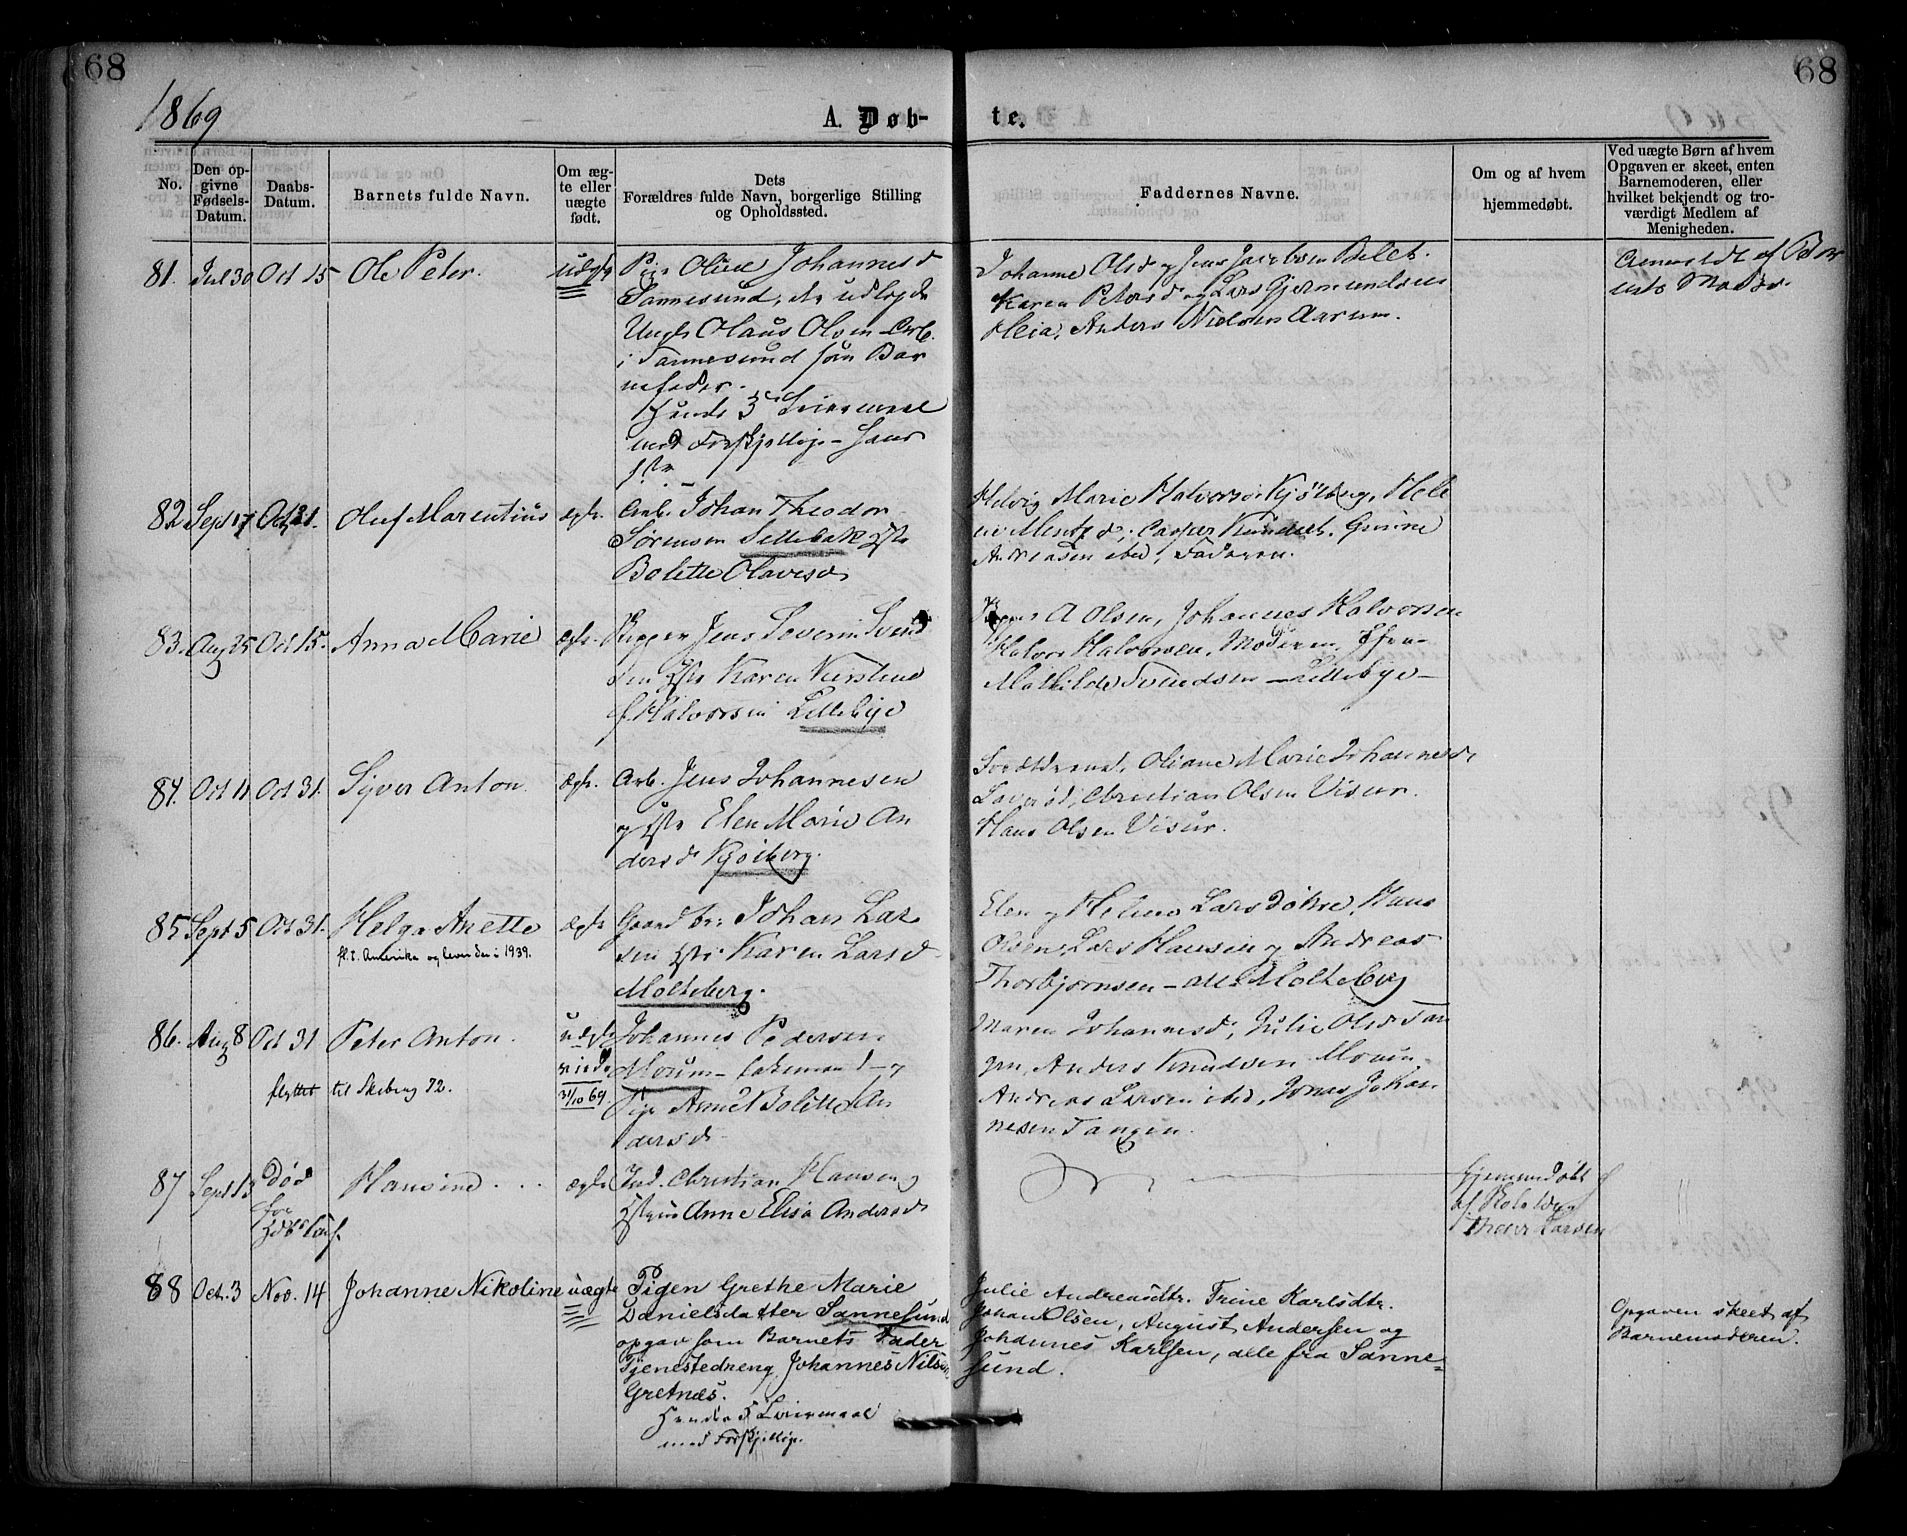 68
68
1869
A. Døb-
te.
No.
Den op-
givne
Fødsels-
Datum.
Daabs-
Datum.
Barnets fulde Navn.
Om æg-
te eller
uægte
født.
Dets
Forældres fulde Navn, borgerlige Stilling
og Opholdssted.
Faddernes Navne.
Om og af hvem
hjemmedøbt.
Ved uægte Børn af hvem
Opgaven er skeet, enten
Barnemoderen, eller
hvilket bekjendt og tro-
værdigt Medlem af
Menigheden.
81. Jul 30 Oct 15 Ole Peter. uægte
Pige Oline Johannesd
Sannesund, der udlagde
Ungk Olaus Olsen Arb.
i Sannesund som Bar
nefader.
Hendes 3 Leiermaal
med Forskjellige - Hans
1ste
Johanne Olsd og Jens Jacobsen
Karen Petersd og Lars Gjermundsen
Heia, Anders Nielsen Aarum.
Anmeldt af Bar
nets Moder
82 Sept 17 Oct 31. Oluf Marentius ægte
Arb. Johan Theodor
Sørensen Sellebak
Bolette Olavesd
Marie Halvorsd Kjølberg, Hele
ne ; Casper
Andreasen ibid, Faderen.
83. Aug 25 Oct 15. Anna Marie ægte.
Jens Severin Svend
sen Karen Kirstine
f. Halvorsen Lillebye
A Olsen, Johannes Halvorsen
Halvor Halvorsen, Moderen,
Mathilde Svendsen - Lillebye -
84. Oct 11 Oct 31. Syver Anton. ægte.
Arb. Jens Johannesen
og Elen Marie An
dersd Kjølberg.
Forældrene, Oliane Marie Johannesd,
Christian Olsen Visur.
Hans Olsen Visur.
85 Sept 5 Oct 31. Helga Anette ægte
fl. t. Amerika og lever der i 1939.
Gaardbr: Johan Lar
sen Karen Larsd
Molteberg.
Elen og Helene Larsdøtre, Hans
Olsen, Lars Hansen og Andreas
Thorbjørnsen - alle Molteberg
86. Aug 8 Oct 31 Peter Anton.
31/10 69.
flyttet til Skeberg 72.
Johannes Pedersen
Moum
Pige Anne Bolette An
dersd
Maren Johannesd, Julie Olsd Tan
gen, Anders Knudsen Moum
Andreas Larsen ibid, Jonas Johan
nesen Tangen.
87 Sept 13 Død Hansine ægte
før
Ind. Christian Hansen og
Anne Elisa Andersd
Hjemmedøbt
af
Larsen
88 Oct. 3 Nov. 14 Johanne Nikoline uægte
Pigen Grethe Marie
Danielsdatter Sannesund
opgav som Barnets Fader
Tjenestedreng Johannes Nilsen
Gretnæs.
Hendes Leiermaal
med Forskjellige.
Julie Andreasdtr. Trine Karlsdtr.
Johan Olsen, August Andersen og
Johannes Karlsen, alle fra Sanne=
sund.
Opgaven skeet af
Barnemoderen.